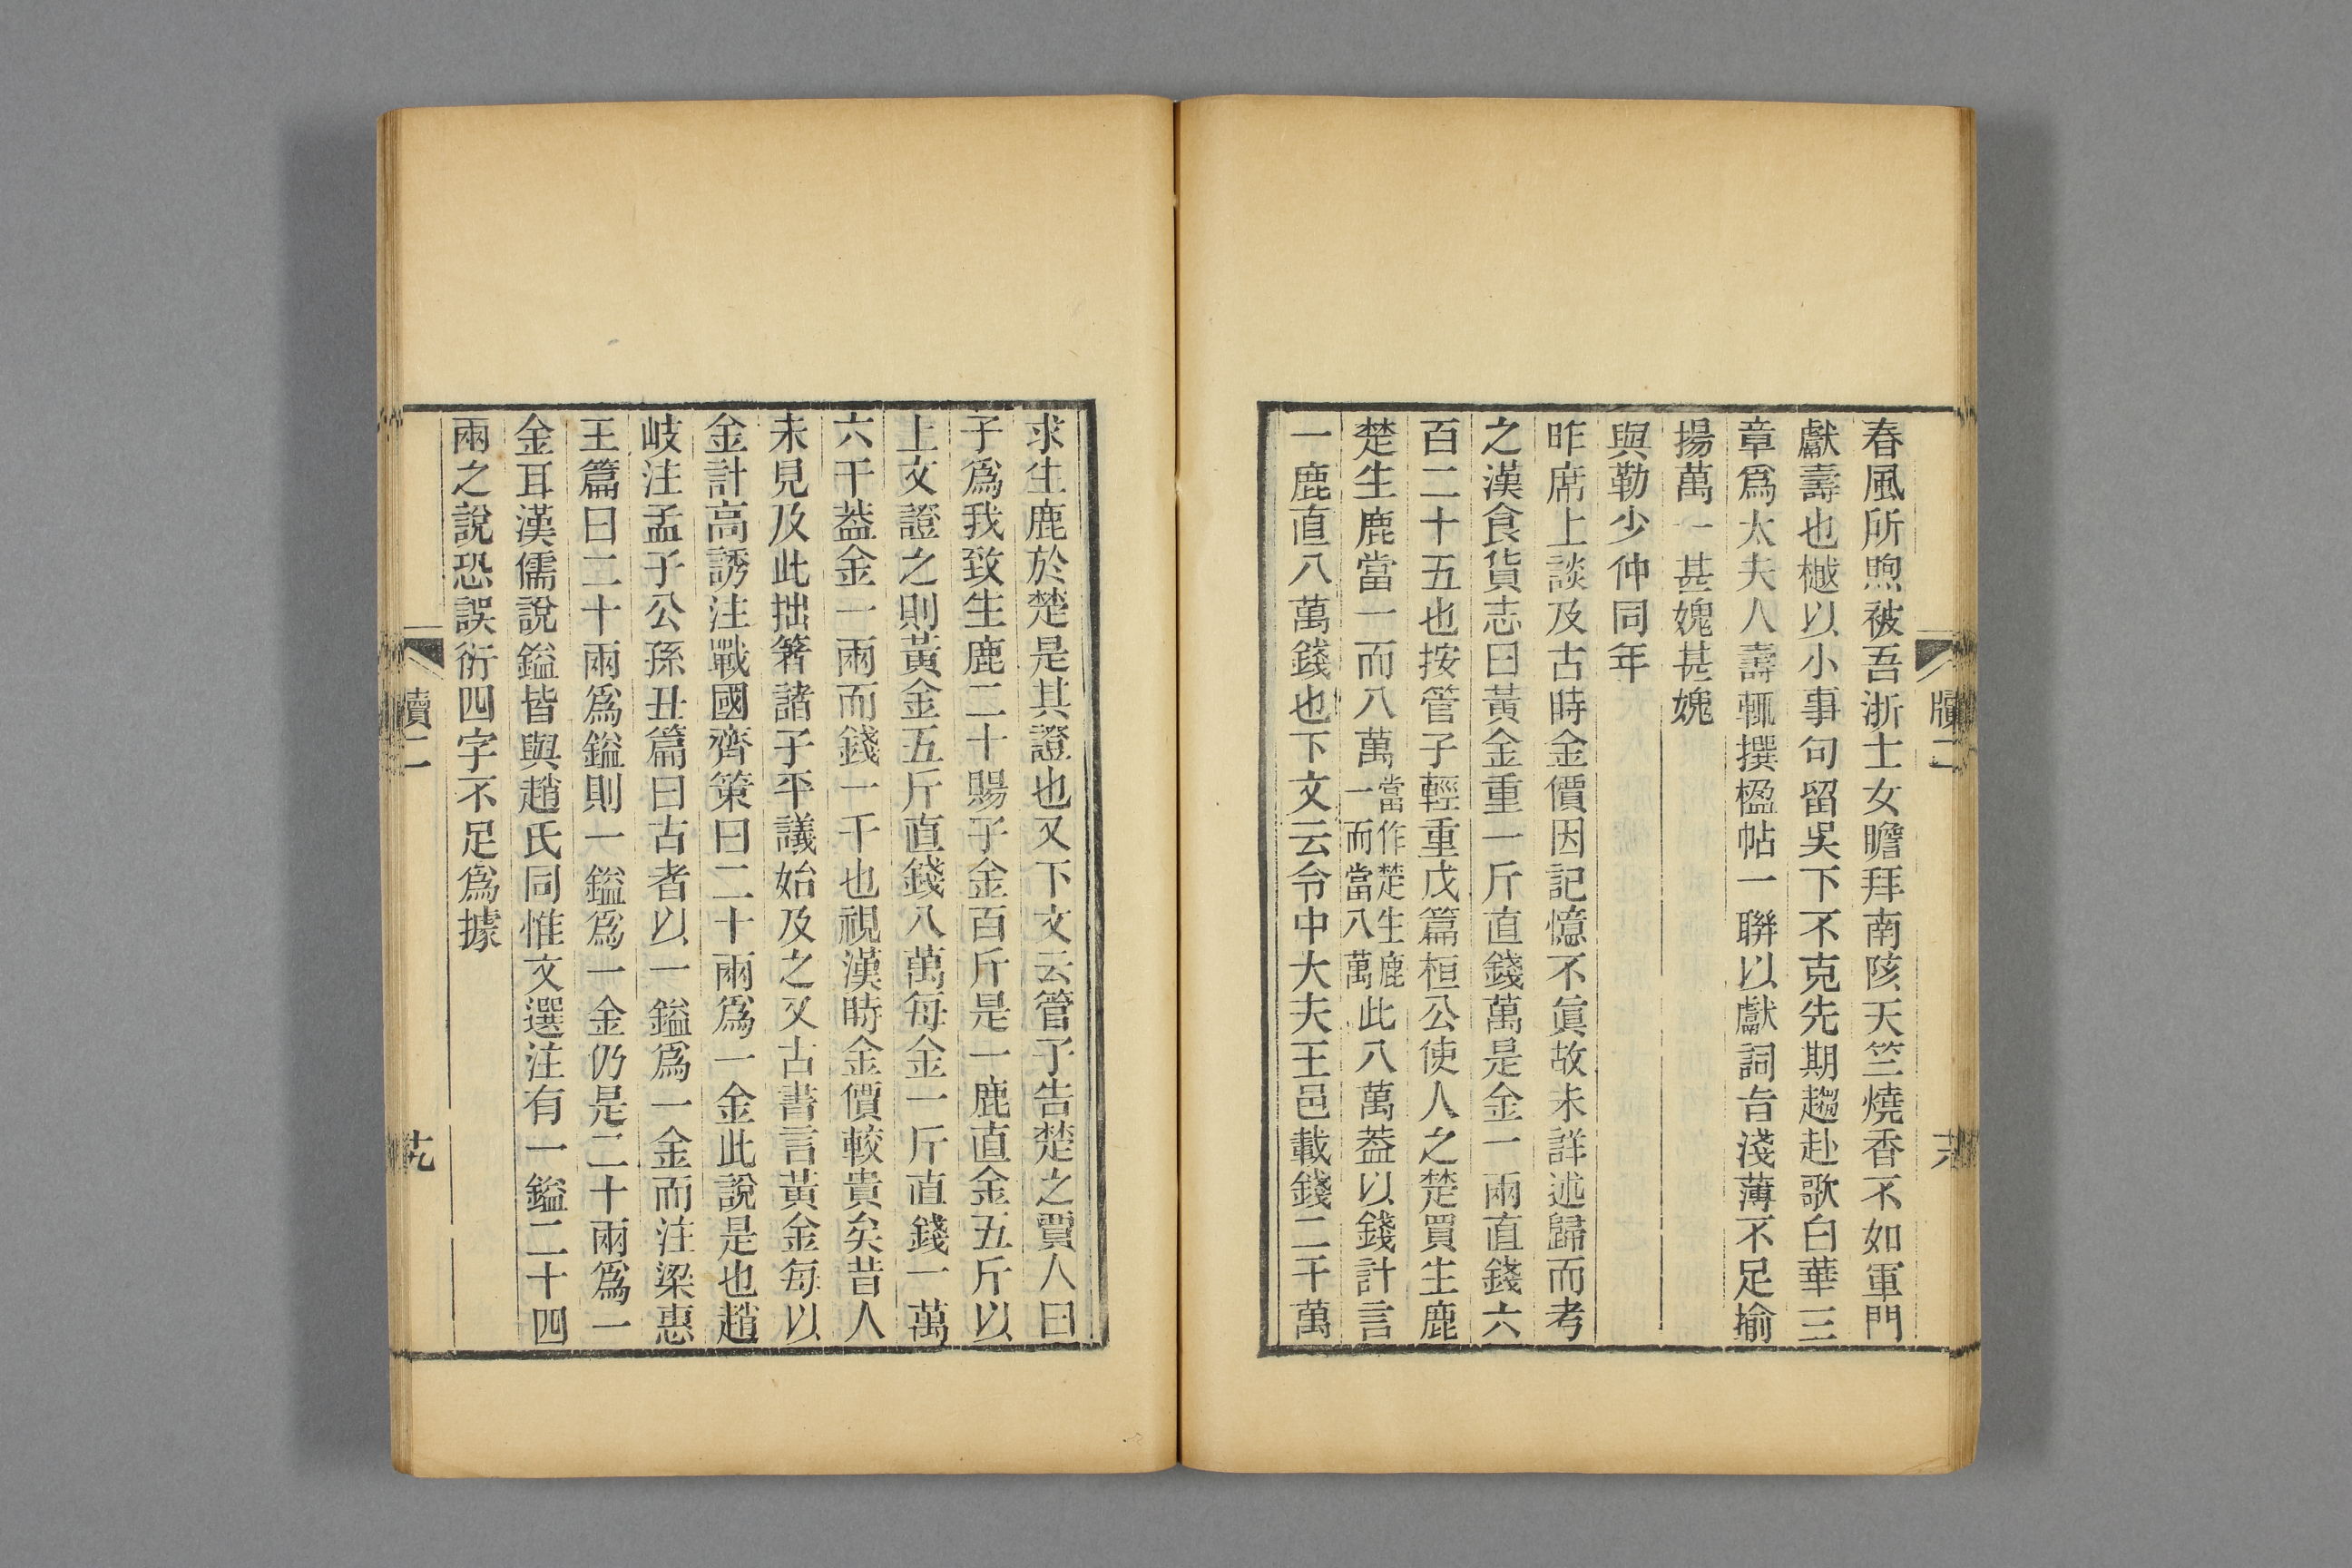 春風所煦被吾浙士女瞻拜南陔天竺燒香不如軍門
獻壽也樾以小事句留吳下不克先期趨赴歌白華三
章爲太夫人壽輒撰楹帖一聯以獻詞旨淺薄不足揄
揚萬一甚媿甚媿
與勒少仲同年
昨席上談及古時金價因記憶不眞故未詳述歸而考
之漢食貨志曰黃金重一斤直錢萬是金一兩直錢六
百二十五也按管子輕重戊篇桓公使人之楚買生鹿
楚生鹿當一而八萬當作楚生鹿一而當八萬此八萬葢以錢計言
一鹿直八萬錢也下文云令中大夫王邑載錢二千萬
牘二
求生鹿於楚是其證也又下文云管子告楚之賈人曰
子爲我致生鹿二十賜子金百斤是一鹿直金五斤以
上文證之則黃金五斤直錢八萬每金一斤直錢一萬
六千葢金一兩而錢一千也視漢時金價較貴矣昔人
未見及此拙箸諸子平議始及之又古書言黃金每以
金計高誘注戰國齊策曰二十兩爲一金此說是也趙
岐注孟子公孫丑篇曰古者以一鎰爲一金而注梁惠
王篇曰二十兩爲鎰則一鎰爲一金仍是二十兩爲一
金耳漢儒說鎰皆與趙氏同惟文選注有一鎰二十四
兩之說恐誤衍四字不足爲據
牘二